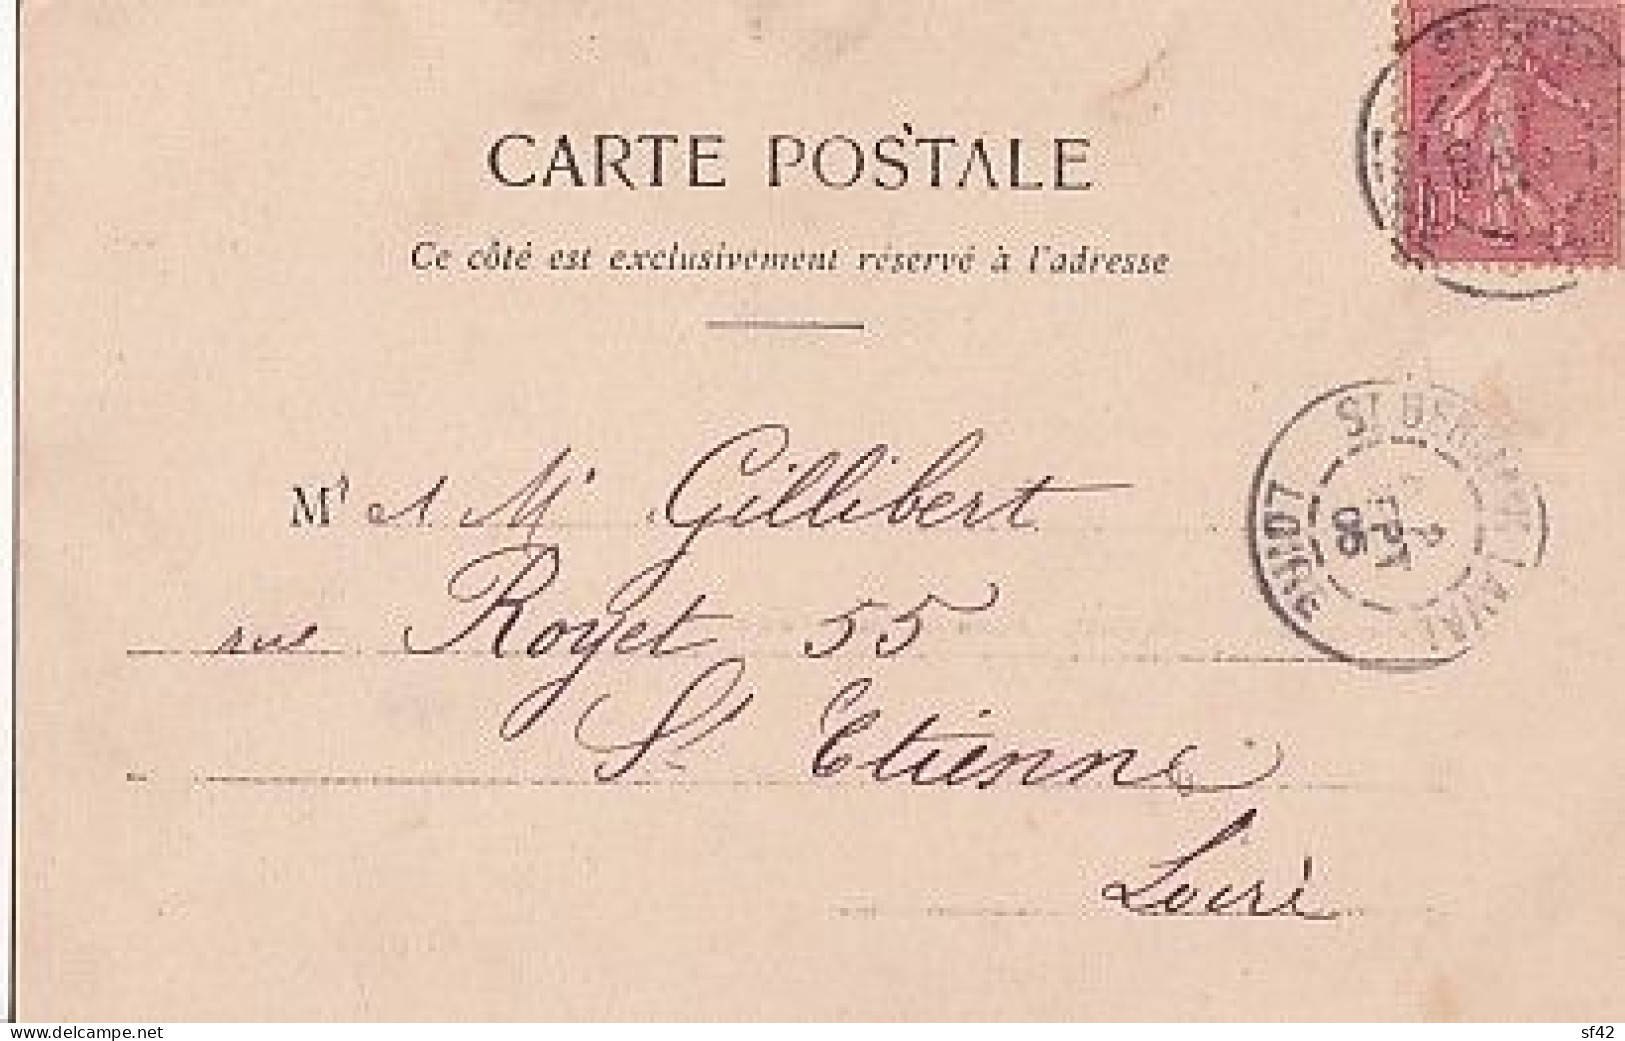 CARTE POSTALE
Ce côté est exclusivement réservé à l'adresse
10
Mʳ et Mᵉ Gillibert
rue Royet 55
St Etienne
Loire
LOIRE
2
SEPT
05
delcampe.net
sf42